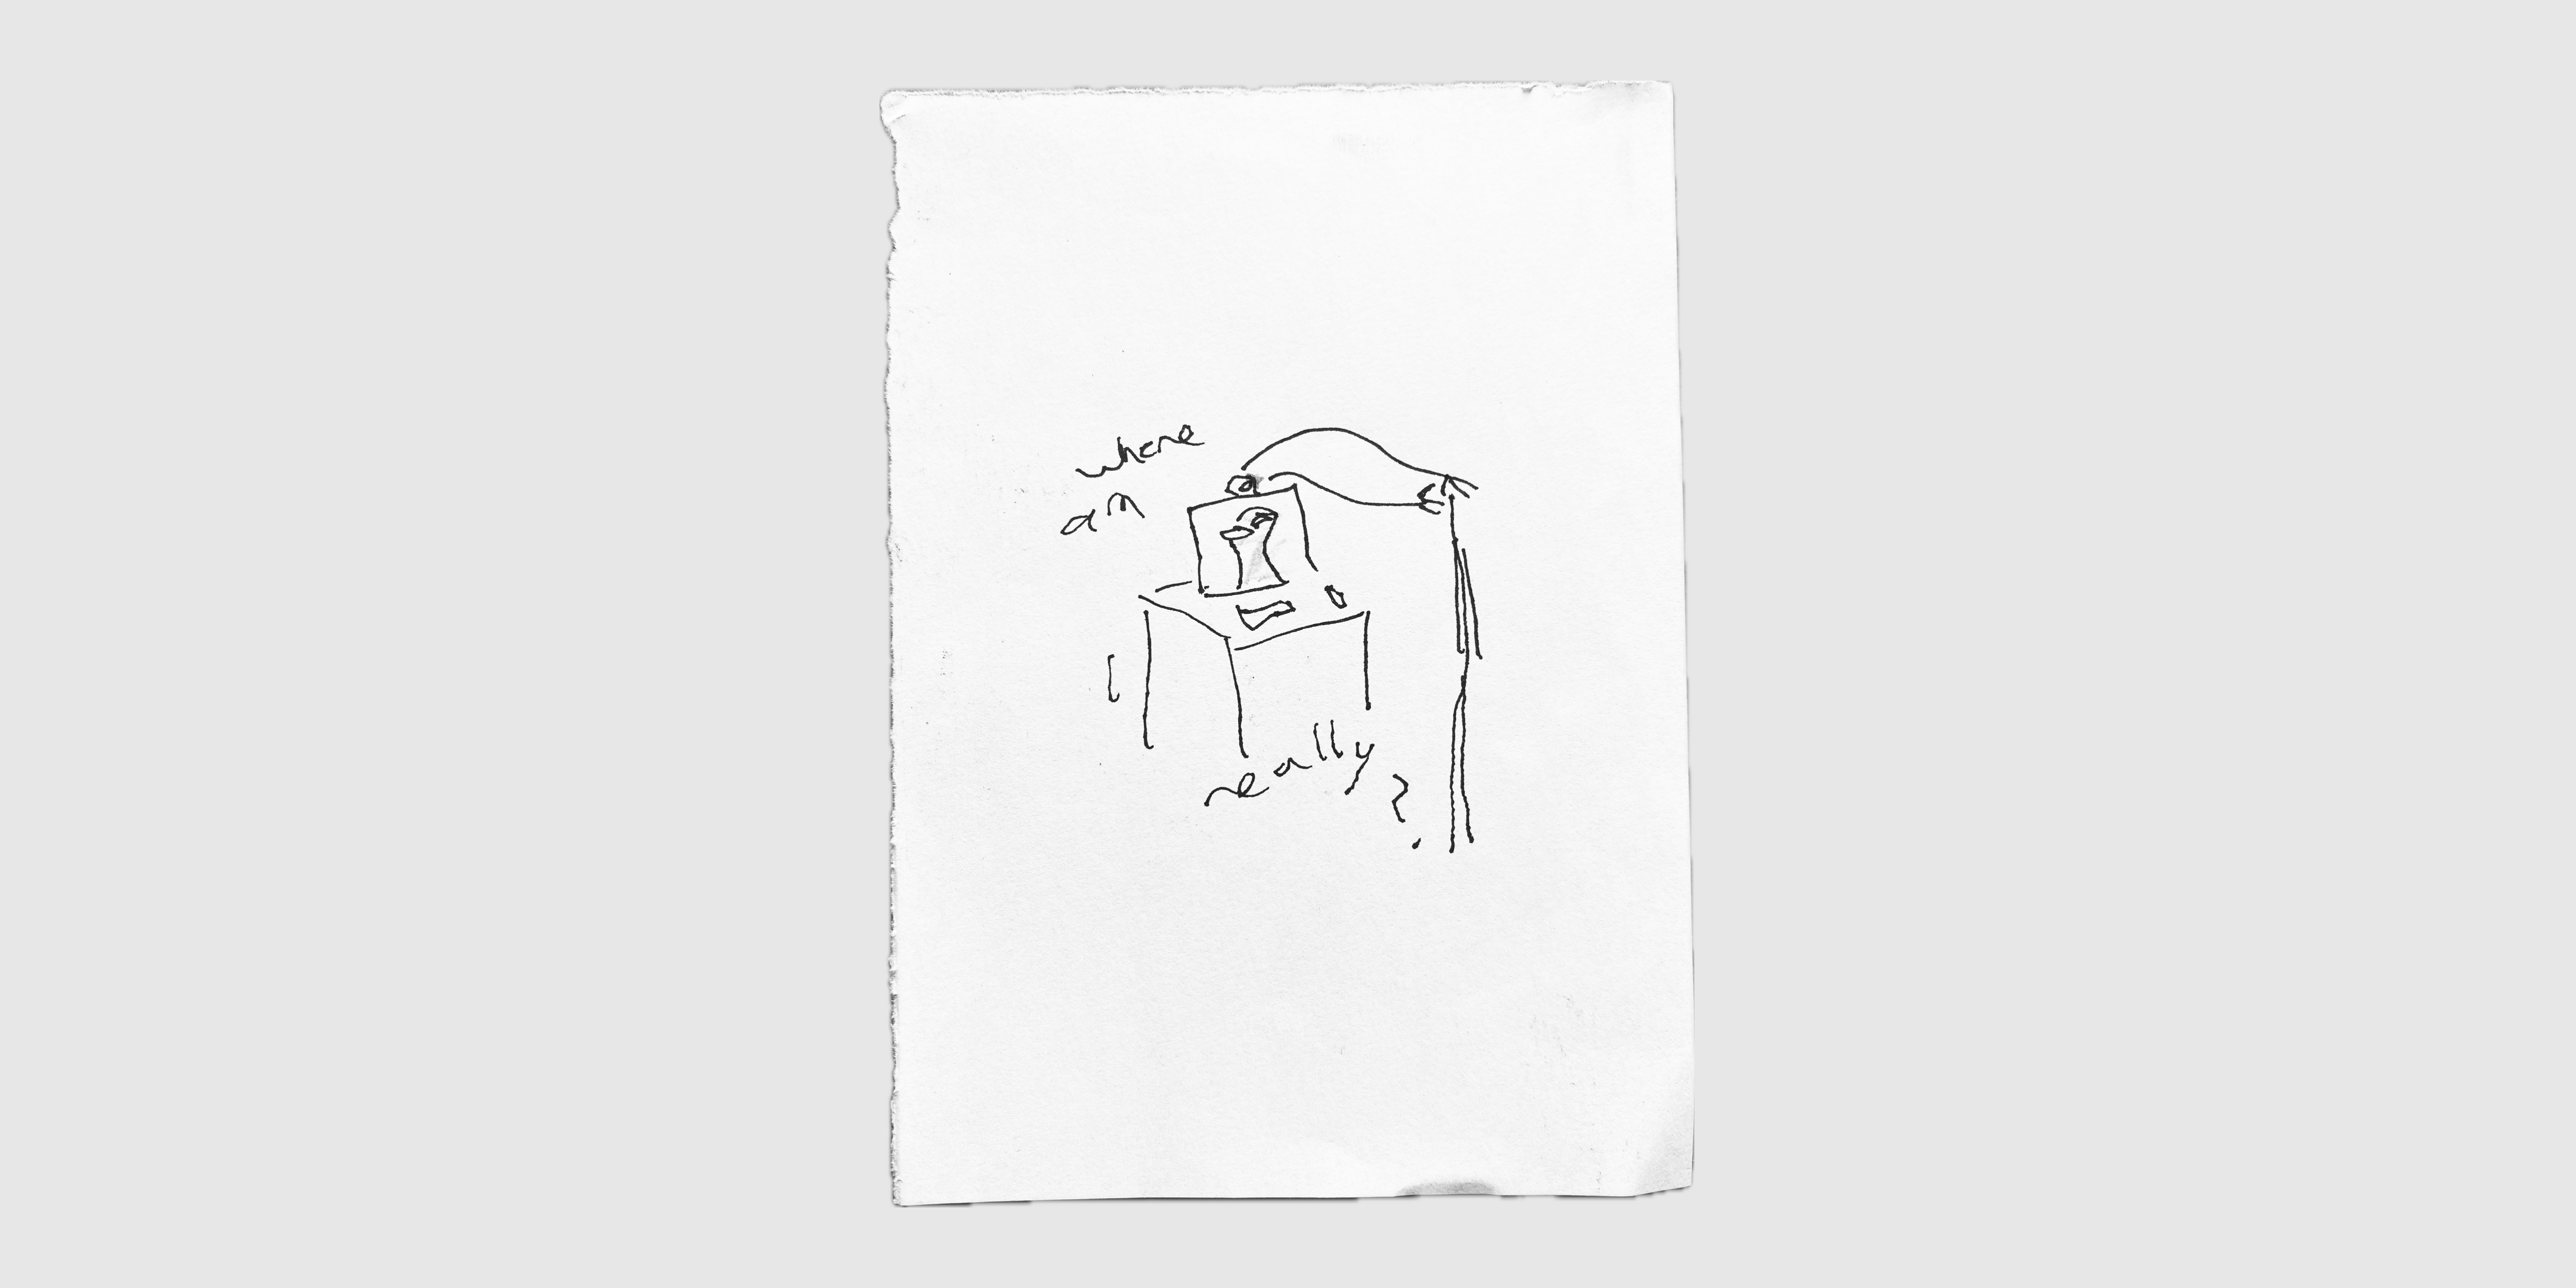 where
am
I
really
?